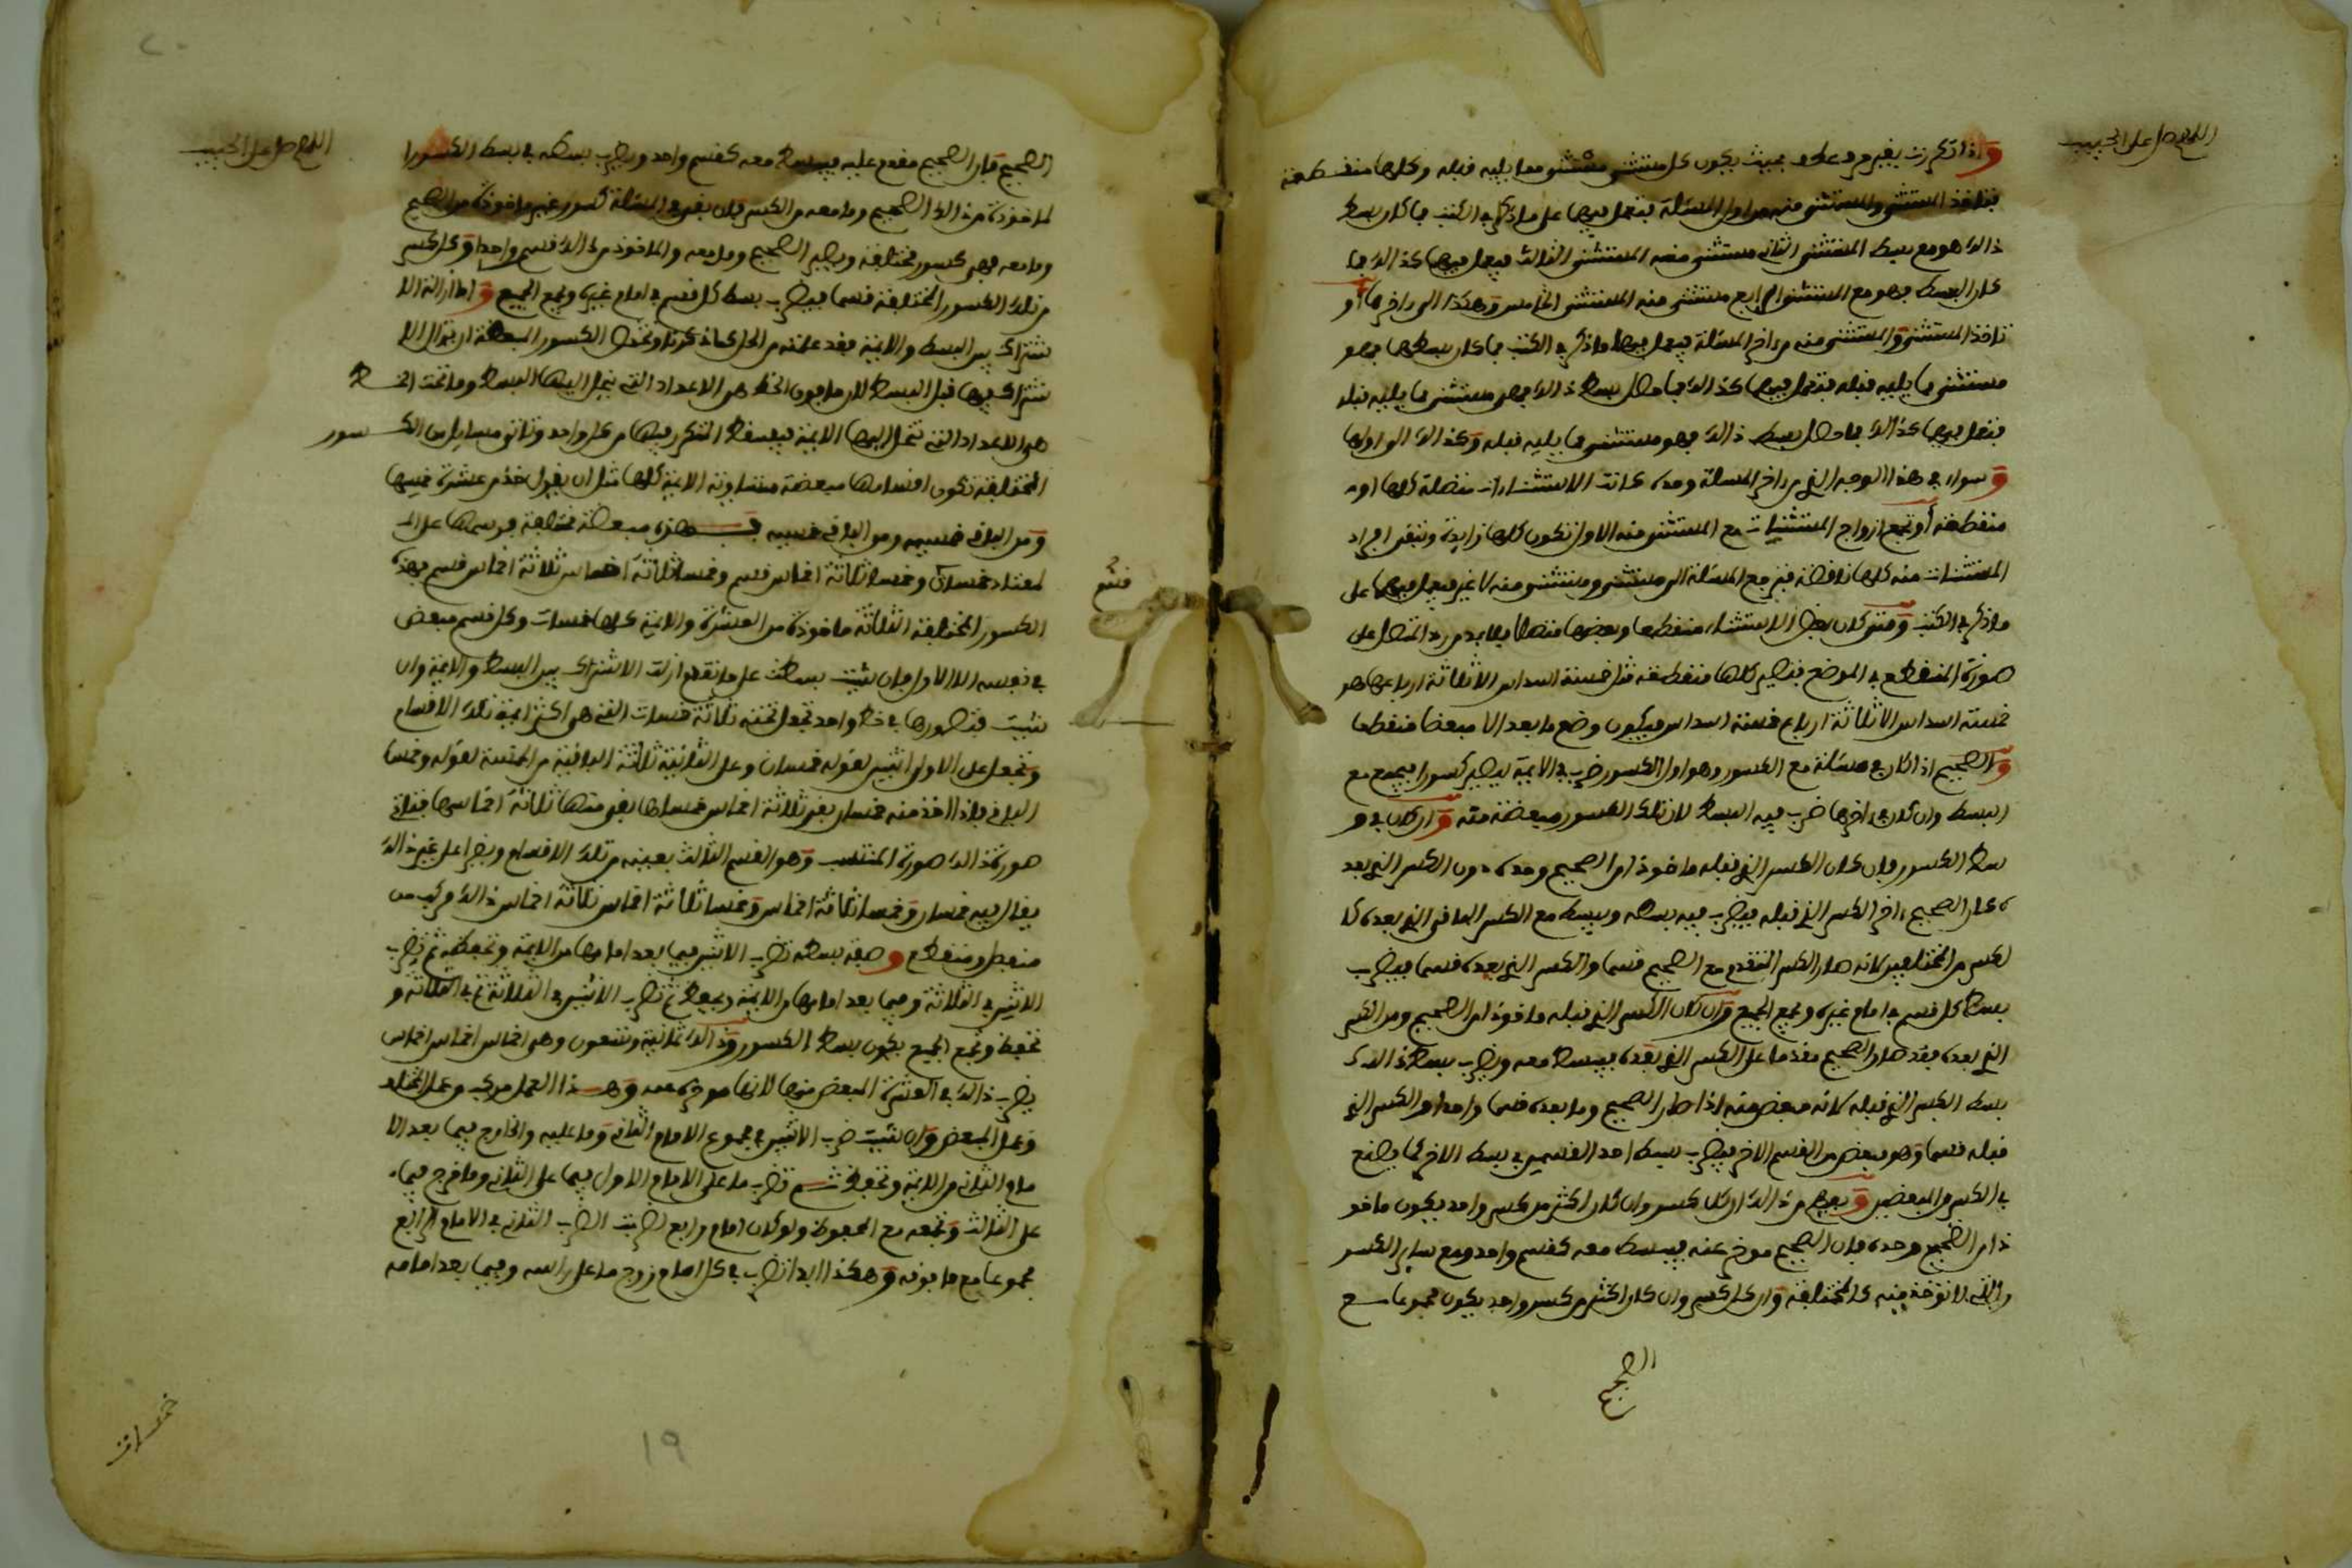 اللهم صل على الحبيب
وإذا تكررت بغير حرف عطف بحيث يكون كل مستثنى مستثنى مما يليه قبله وكلها منقطعة
فتأخذ المستثنى والمستثنى منه من أول المسئلة فتعمل فيها على ما ذكر في الكتب فما كان بسط
ذالك هو مع بسط المستثنى الثاني مستثنى منه المستثنى الثالث فيعمل فيها كذالك فما
كان البسط فهو مع المستثنى الرابع مستثنى منه المستثنى الخامس وهكذا إلى ءاخرها أو
تأخذ المستثنى والمستثنى منه من ءاخر المسئلة فيعمل فيها ما ذكر في الكتب فما كان بسطها فهو
مستثنى مما يليه قبله فتعمل فيها كذالك فما حصل بسط ذالك فهو مستثنى مما يليه قبله
فتعمل فيها كذالك فما حصل بسط ذالك فهو مستثنى مما يليه قبله وكذالك إلى أولها
وسواء في هذا الوجه الذي من ءاخر المسئلة وحده كانت الاستثناءات متصلة كلها أو
منقطعة أو تجمع أزواج المستثنيات مع المستثنى منه الأول فتكون كلها زايدة وتبقى أفراد
المستثنيات منه كلها ناقصة فترجع المسئلة إلى مستثنى ومستثنى منه لا غير فيعمل فيها على
ما ذكر في الكتب ومتى كان بعض الاستثناء منقطعا وبعضها متصلا فلا بد من رد المتصل على
صورة المنقطع في الموضع فتصير كلها منقطعة مثل خمسة أسداس إلا ثلاثة أرباعها هو
خمسة أسداس إلا ثلاثة أرباع خمسة أسداس فيكون وضع ما بعد إلا مبعضا منقطعا
والصحيح إذا كان في مسئلة مع الكسور وهو أول الكسور ضرب في الأيمة ليصير كسورا فيجمع مع
البسط وإن كان في ءاخرها ضرب فيه البسط لأن تلك الكسور مبعضة منه وإن كان في و
سط الكسور فإن كان الكسر الذي قبله مأخوذا من الصحيح وحده دون الكسر الذي بعد
ه كان الصحيح ءاخر الكسر الذي قبله فيضرب فيه بسطه ويبسط مع الكسر الباقي الذي بعده كا
لكسر من المختلفين لأنه صار الكسر المتقدم مع الصحيح قسما والكسر الذي بعده قسما فيضرب
بسط كل قسم في إمام غيره ويجمع الجميع وإن كان الكسر الذي قبله مأخوذا من الصحيح ومن الكسر
الذي بعده فقد صار الصحيح مقدما على الكسر الذي بعده فيبسط معه ويضرب بسط ذالك في
بسط الكسر الذي قبله لأنه مبعض منه إذا صار الصحيح وما بعده قسما واحدا والكسر الذي
قبله قسما وهو مبعض من القسم الآخر فيضرب بسط أحد القسمين في بسط الآخر كما يصنع
في الكسر المبعض ويفهم من ذالك أن كل كسر وإن كان أكثر من كسر واحد يكون مأخو
ذا من الصحيح وحده فإن الصحيح مؤخر عنه فيبسط معه كقسم واحد ومع ساير الكسر
والتي لا تؤخذ منه كالمختلفة وإن كل كسر وإن كان أكثر من كسر واحد يكون مجموعا مع
الصحيح
اللهم صل على الحبيب
الصحيح فإن الصحيح مقدم عليه فيبسط معه كقسم واحد ويضرب بسطه في بسط الكسور ا
لمأخوذة من ذالك الصحيح وما معه من الكسر فإن بقي في المسئلة كسور غير مأخوذة من الصحيح
وما معه فهي كسور مختلفة ويصير الصحيح وما معه والمأخوذ من ذالك قسم واحدا وكل كسر
من تلك الكسور المختلفة قسما فيضرب بسط كل قسم في إمام غيره ويجمع الجميع وأما إزالة الا
شتراك بين البسط والأيمة فقد علمته من الحل كما ذكرنا وتختص الكسور المبعضة أن تزال الا
شتراك فيها قبل البسط لأن ما فوق الخط هي الأعداد التي ينحل إليها البسط وما تحت الخط
هي الأعداد التي تنحل إليها الأيمة فيسقط المتكرر فيها من كل واحد وتأتي مسايل من الكسور
المختلفة تكون أقسامها مبعضة متساوية الأيمة كلها مثل أن يقول خذ من عشرة خمسيها
ومن الباقي خمسيه ومن الباقي خمسيه فهذه مبعضة مختلفة فرسمها على الـ
لمعتاد خمسان وخمسا ثلاثة أخماس قسم وخمسا ثلاثة أخماس ثلاثة أخماس قسم فهذه
الكسور المختلفة الثلاثة مأخوذة من العشرة والأيمة كلها خمسات وكل قسم مبعض
في نفسه إلا الأول فإن شيت بسطت على ما تقدم أزلت الاشتراك بين البسط والأيمة وإن
شيت فتصورها في خط واحد تجعل تحته ثلاثة خمسات التي هي أكثر أيمة تلك الأقسام
وتجعل على الأول اثنين لقوله خمسان وعلى الثانية ثلاثة الباقية من الخمسة لقوله وخمسا
الباقي فإذا أخذ منه خمسان بقي ثلاثة أخماس خمساها بقي منها ثلاثة أخماسها فتأتي
صورة كذالك صورة المنتسب وهو القسم الثالث بعينه من تلك الأقسام ويقرا على غير ذالك
يقال فيه خمسان وخمسا ثلاثة أخماس وخمسا ثلاثة أخماس ثلاثة أخماس ذالك مركب من
متصل ومنقطع وصفة بسطه تضرب الاثنين فيما بعد إمامها من الأيمة وتحفظه ثم تضرب
الاثنين في الثلاثة وفيما بعد إمامها من الأيمة ويحفظ ثم تضرب الاثنين في الثلاثة ثم في الثلاثة و
تحفظ وتجمع الجميع يكون بسط الكسور وذالك ثمانية وتسعون وهي أخماس أخماس أخماس
يضرب ذالك في العشرة المبعض منها لأنها مؤخرة عنه وهذا العمل مركب من عمل المختلف
وعمل المبعض وإن شيت ضرب الاثنين في مجموع الإمام الثاني وما عليه والخارج فيما بعد الا
مام الثاني من الأيمة وتحفظه ثم تضرب ما على الإمام الأول فيما على الثاني وما خرج فيما
على الثالث وتجمعه مع المحفوظ ولو كان إمام رابع لضربت الضرب الثاني في الإمام الرابع
مجموعا مع ما فوقه وهكذا أبدا تضرب في كل إمام زوج ما على رأسه وفيما بعد إمامه
خمسات
19